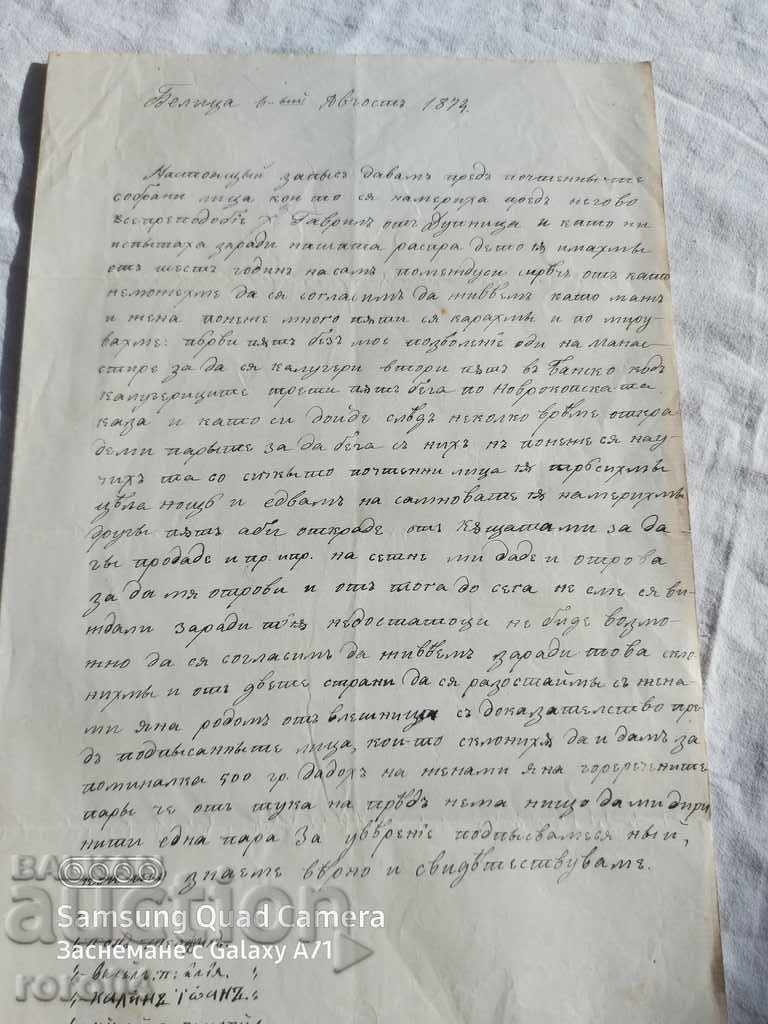 Белица 6-ѝй Августъ 1874.
Настоящый записъ давамъ предъ почтенныте
собрани лица кои то ся намериха предъ негово
всепреподобіе Х Гаврилъ отъ Дупница и като ни
испытаха заради нашата распра дето ѭ имахмы
отъ шесть годин насамъ, помеждуси сирѣчъ отъ като
неможехме да ся согласимъ да живѣемъ като мѫжъ
и жена понеже много пѫти ся карахмы и помиру
вахме: първи пѫтъ безъ мое позволеніе оди на манас
тире за да ся калугери втори пѫтъ въ Банско кѫдъ
калугериците трети пѫтъ бѣга по Неврокопска та
каза и като си дойде слѣдъ неколко врѣме откра
деми парыте за да бѣга съ нихъ нъ понеже ся нау
чихъ та со сичкыто почтенни лица ѭ търсихмы
цѣла нощь и едвамъ на самноваше ѭ намерихмы
другы пѫтъ аби открадe отъ кѫщатами за да
гы продаде и пр. ипр. на сетне ми даде и отрова
за да мя отрови и отъ тога до сега не сме ся ви
ждали заради тѣя недостатоци не биде возмо
жно да ся согласимъ да живѣемъ заради това скло
нихмы и отъ двете страни да ся разостаймы съ жена
ми Яна родомъ отъ Елешница съ доказателство пре
дъ подписанныте лица, кои то склонихѫ да и дамъ за
поминалка 500 гр. Дадохъ на женами Яна горереченните
пары че отъ тука на прѣдъ нема нищо да ми дири
нити една пара За увѣреніе подписвамеся ный,
кои то знаеме вѣрно и свидѣтествуваме.
Samsung Quad Camera
Заснемане с Galaxy A71
auction
„-Калинъ Іоанъ. „